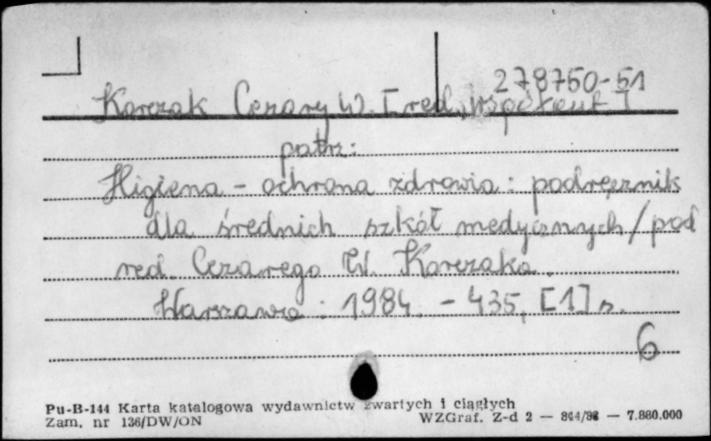 278750-51
Korczak Cezary W. [red., współaut.]
patrz:
Higiena - ochrona zdrowia : podręcznik
dla średnich szkół medycznych / pod
red. Cezarego W. Korczaka.
Warszawa : 1984. - 435, [1] s.
6
Pu-B-144 Karta katalogowa wydawnictw zwartych i ciągłych
Zam. nr 136/DW/ON WZGraf. Z-d 2 — — 7.880.000